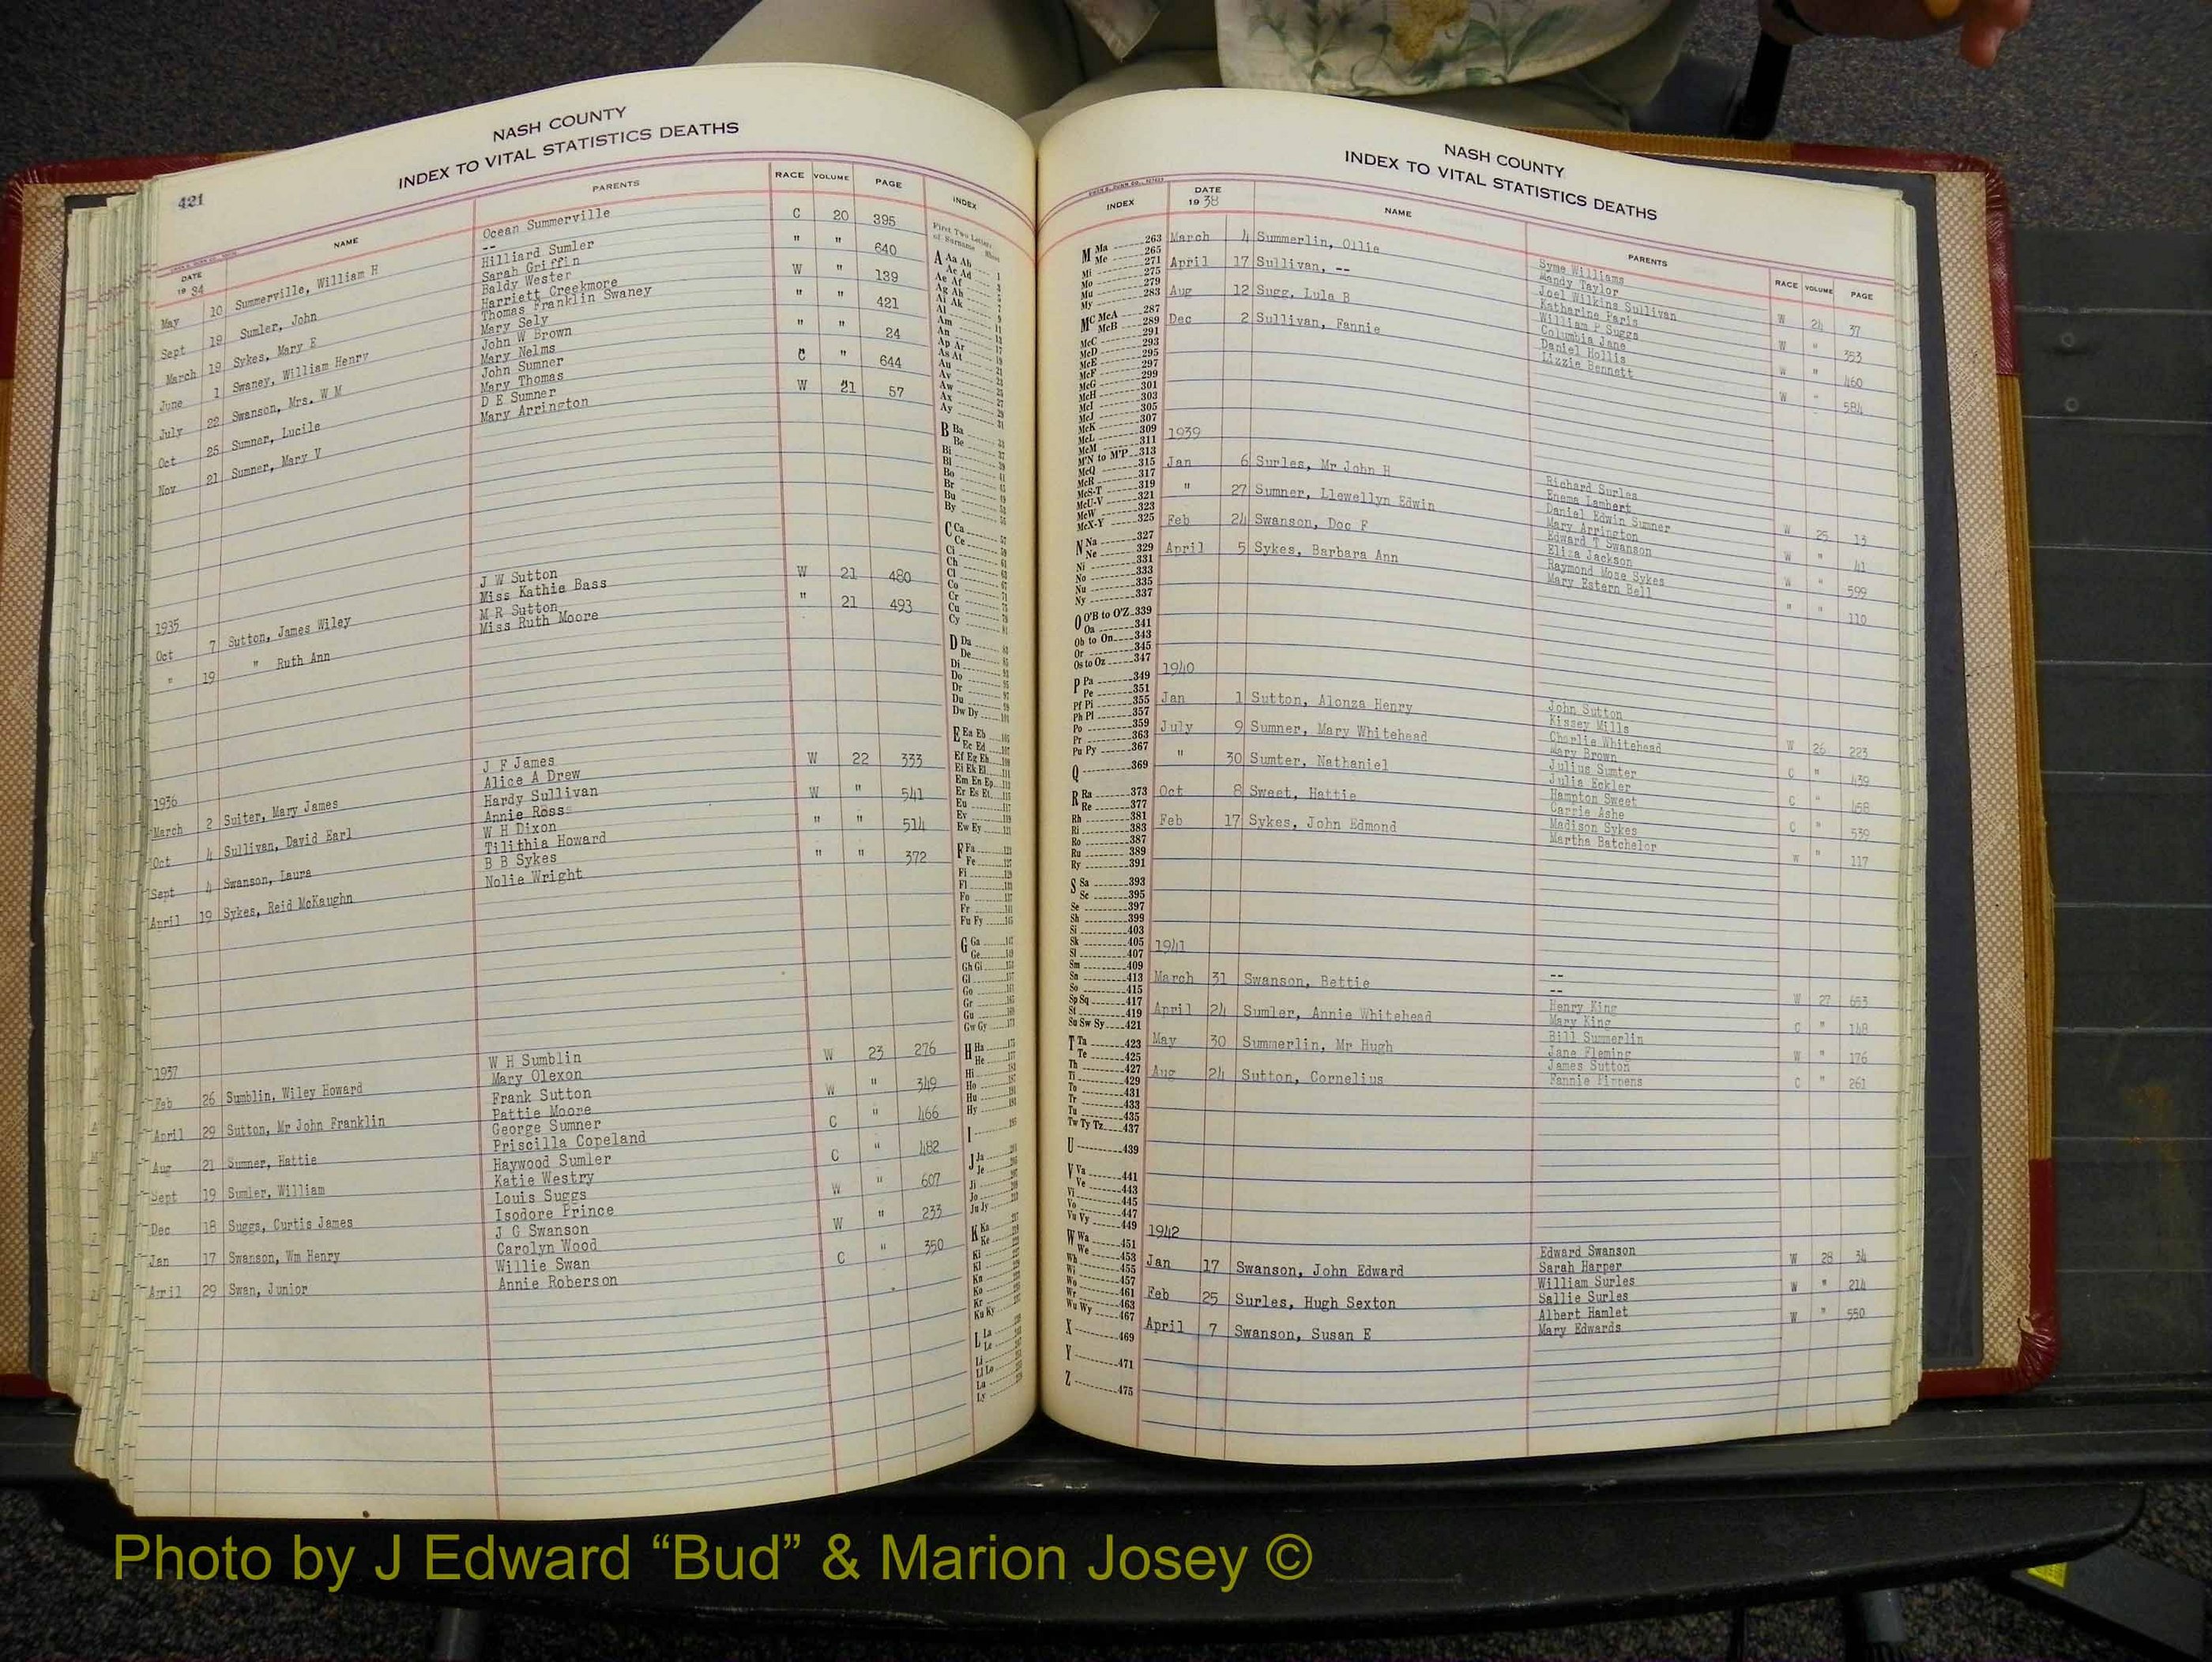 NASH COUNTY
INDEX TO VITAL STATISTICS DEATHS
421
DATE NAME PARENTS RACE VOLUME PAGE INDEX
19 34
May 10 Summerville, William H Ocean Summerville C 20 395
--
Sept 19 Sumler, John Hilliard Sumler " " 640
Sarah Griffin
March 19 Sykes, Mary E Baldy Wester W " 139
Harriett Creekmore
June 1 Swaney, William Henry Thomas Franklin Swaney " " 421
Mary Sely
July 22 Swanson, Mrs. W M John W Brown " " 24
Mary Nelms
Oct 25 Sumner, Lucile John Sumner C " 644
Mary Thomas
Nov 21 Sumner, Mary V D E Sumner W 21 57
Mary Arrington
1935
Oct 7 Sutton, James Wiley J W Sutton W 21 480
Miss Kathie Bass
" 19 " Ruth Ann M R Sutton " 21 493
Miss Ruth Moore
1936
March 2 Suiter, Mary James J F James W 22 333
Alice A Drew
Oct 4 Sullivan, David Earl Hardy Sullivan W " 541
Annie Ross
Sept 4 Swanson, Laura W H Dixon " " 514
Tilithia Howard
April 19 Sykes, Reid McKaughn B B Sykes " " 372
Nolie Wright
1937
Feb 26 Sumblin, Wiley Howard W H Sumblin W 23 276
Mary Olexon
April 29 Sutton, Mr John Franklin Frank Sutton W " 349
Pattie Moore
Aug 21 Sumner, Hattie George Sumner C " 466
Priscilla Copeland
Sept 19 Sumler, William Haywood Sumler C " 482
Katie Westry
Dec 18 Suggs, Curtis James Louis Suggs W " 607
Isodore Prince
Jan 17 Swanson, Wm Henry J G Swanson W " 233
Carolyn Wood
April 29 Swan, Junior Willie Swan C " 350
Annie Roberson
First Two Letters
of Surname
A Aa Ab
Ac Ad
Ae Af
Ag Ah
Ai Ak
Al
Am
An
Ap Ar
As At
Au
Av
Aw
Ax
Ay
B Ba
Be
Bi
Bl
Bo
Br
Bu
By
C Ca
Ce
Ci
Ch
Cl
Co
Cr
Cu
Cy
D Da
De
Di
Do
Dr
Du
Dw Dy
E Ea Eb
Ec Ed
Ef Eg Eh
Ei Ek El
Em En Ep
Er Es Et
Eu
Ev
Ew Ey
F Fa
Fe
Fi
Fl
Fo
Fr
Fu Fy
G Ga
Ge
Gh Gi
Gl
Go
Gr
Gu
Gw Gy
H Ha
He
Hi
Ho
Hu
Hy
I
J Ja
Je
Ji
Jo
Ju Jy
K Ka
Ke
Ki
Kl
Kn
Ko
Kr
Ku Ky
L La
Le
Li
Ll Lo
Lu
Ly
NASH COUNTY
INDEX TO VITAL STATISTICS DEATHS
INDEX DATE NAME PARENTS RACE VOLUME PAGE
19 38
M Ma 263
Me 265
Mi 271
Mo 275
Mu 279
My 283
Mc McA 287
McB 289
McC 291
McD 293
McE 295
McF 297
McG 299
McH 301
McI 303
McJ 305
McK 307
McL 309
McM 311
M'N to M'P 313
McQ 315
McR 317
McS-T 319
McU-V 321
McW 323
McX-Y 325
N Na 327
Ne 329
Ni 331
No 333
Nu 335
Ny 337
O O'B to O'Z 339
Oa 341
Oh to On 343
Or 345
Os to Oz 347
P Pa 349
Pe 351
Pf Pi 355
Ph Pl 357
Po 359
Pr 363
Pu Py 367
Q 369
R Ra 373
Re 377
Rh 381
Ri 383
Ro 387
Ru 389
Ry 391
S Sa 393
Sc 395
Se 397
Sh 399
Si 403
Sk 405
Sl 407
Sm 409
Sn 413
So 415
Sp Sq 417
St 419
Su Sw Sy 421
T Ta 423
Te 425
Th 427
Ti 429
To 431
Tr 433
Tu 435
Tw Ty Tz 437
U 439
V Va 441
Ve 443
Vi 445
Vo 447
Vu Vy 449
W Wa 451
We 453
Wh 455
Wi 457
Wo 461
Wr 463
Wu Wy 467
X 469
Y 471
Z 475
March 4 Summerlin, Ollie Syme Williams W 24 37
Mandy Taylor
April 17 Sullivan, -- Joel Wilkins Sullivan W " 353
Katharine Paris
Aug 12 Sugg, Lula B William P Suggs W " 460
Columbia Jane
Dec 2 Sullivan, Fannie Daniel Hollis W " 584
Lizzie Bennett
1939
Jan 6 Surles, Mr John H Richard Surles W 25 13
Enema Lambert
" 27 Sumner, Llewellyn Edwin Daniel Edwin Sumner W " 41
Mary Arrington
Feb 24 Swanson, Doc F Edward T Swanson W " 599
Eliza Jackson
April 5 Sykes, Barbara Ann Raymond Mose Sykes " " 110
Mary Estern Bell
1940
Jan 1 Sutton, Alonza Henry John Sutton W 26 223
Kissey Mills
July 9 Sumner, Mary Whitehead Charlie Whitehead C " 439
Mary Brown
" 30 Sumter, Nathaniel Julius Sumter C " 468
Julia Eckler
Oct 8 Sweet, Hattie Hampton Sweet C " 539
Carrie Ashe
Feb 17 Sykes, John Edmond Madison Sykes W " 117
Martha Batchelor
1941
March 31 Swanson, Bettie -- W 27 653
--
April 24 Sumler, Annie Whitehead Henry King C " 148
Mary King
May 30 Summerlin, Mr Hugh Bill Summerlin W " 176
Jane Fleming
Aug 24 Sutton, Cornelius James Sutton C " 261
Fannie Pippens
1942
Jan 17 Swanson, John Edward Edward Swanson W 28 34
Sarah Harper
Feb 25 Surles, Hugh Sexton William Surles W " 214
Sallie Surles
April 7 Swanson, Susan E Albert Hamlet W " 550
Mary Edwards
Photo by J Edward “Bud” & Marion Josey ©